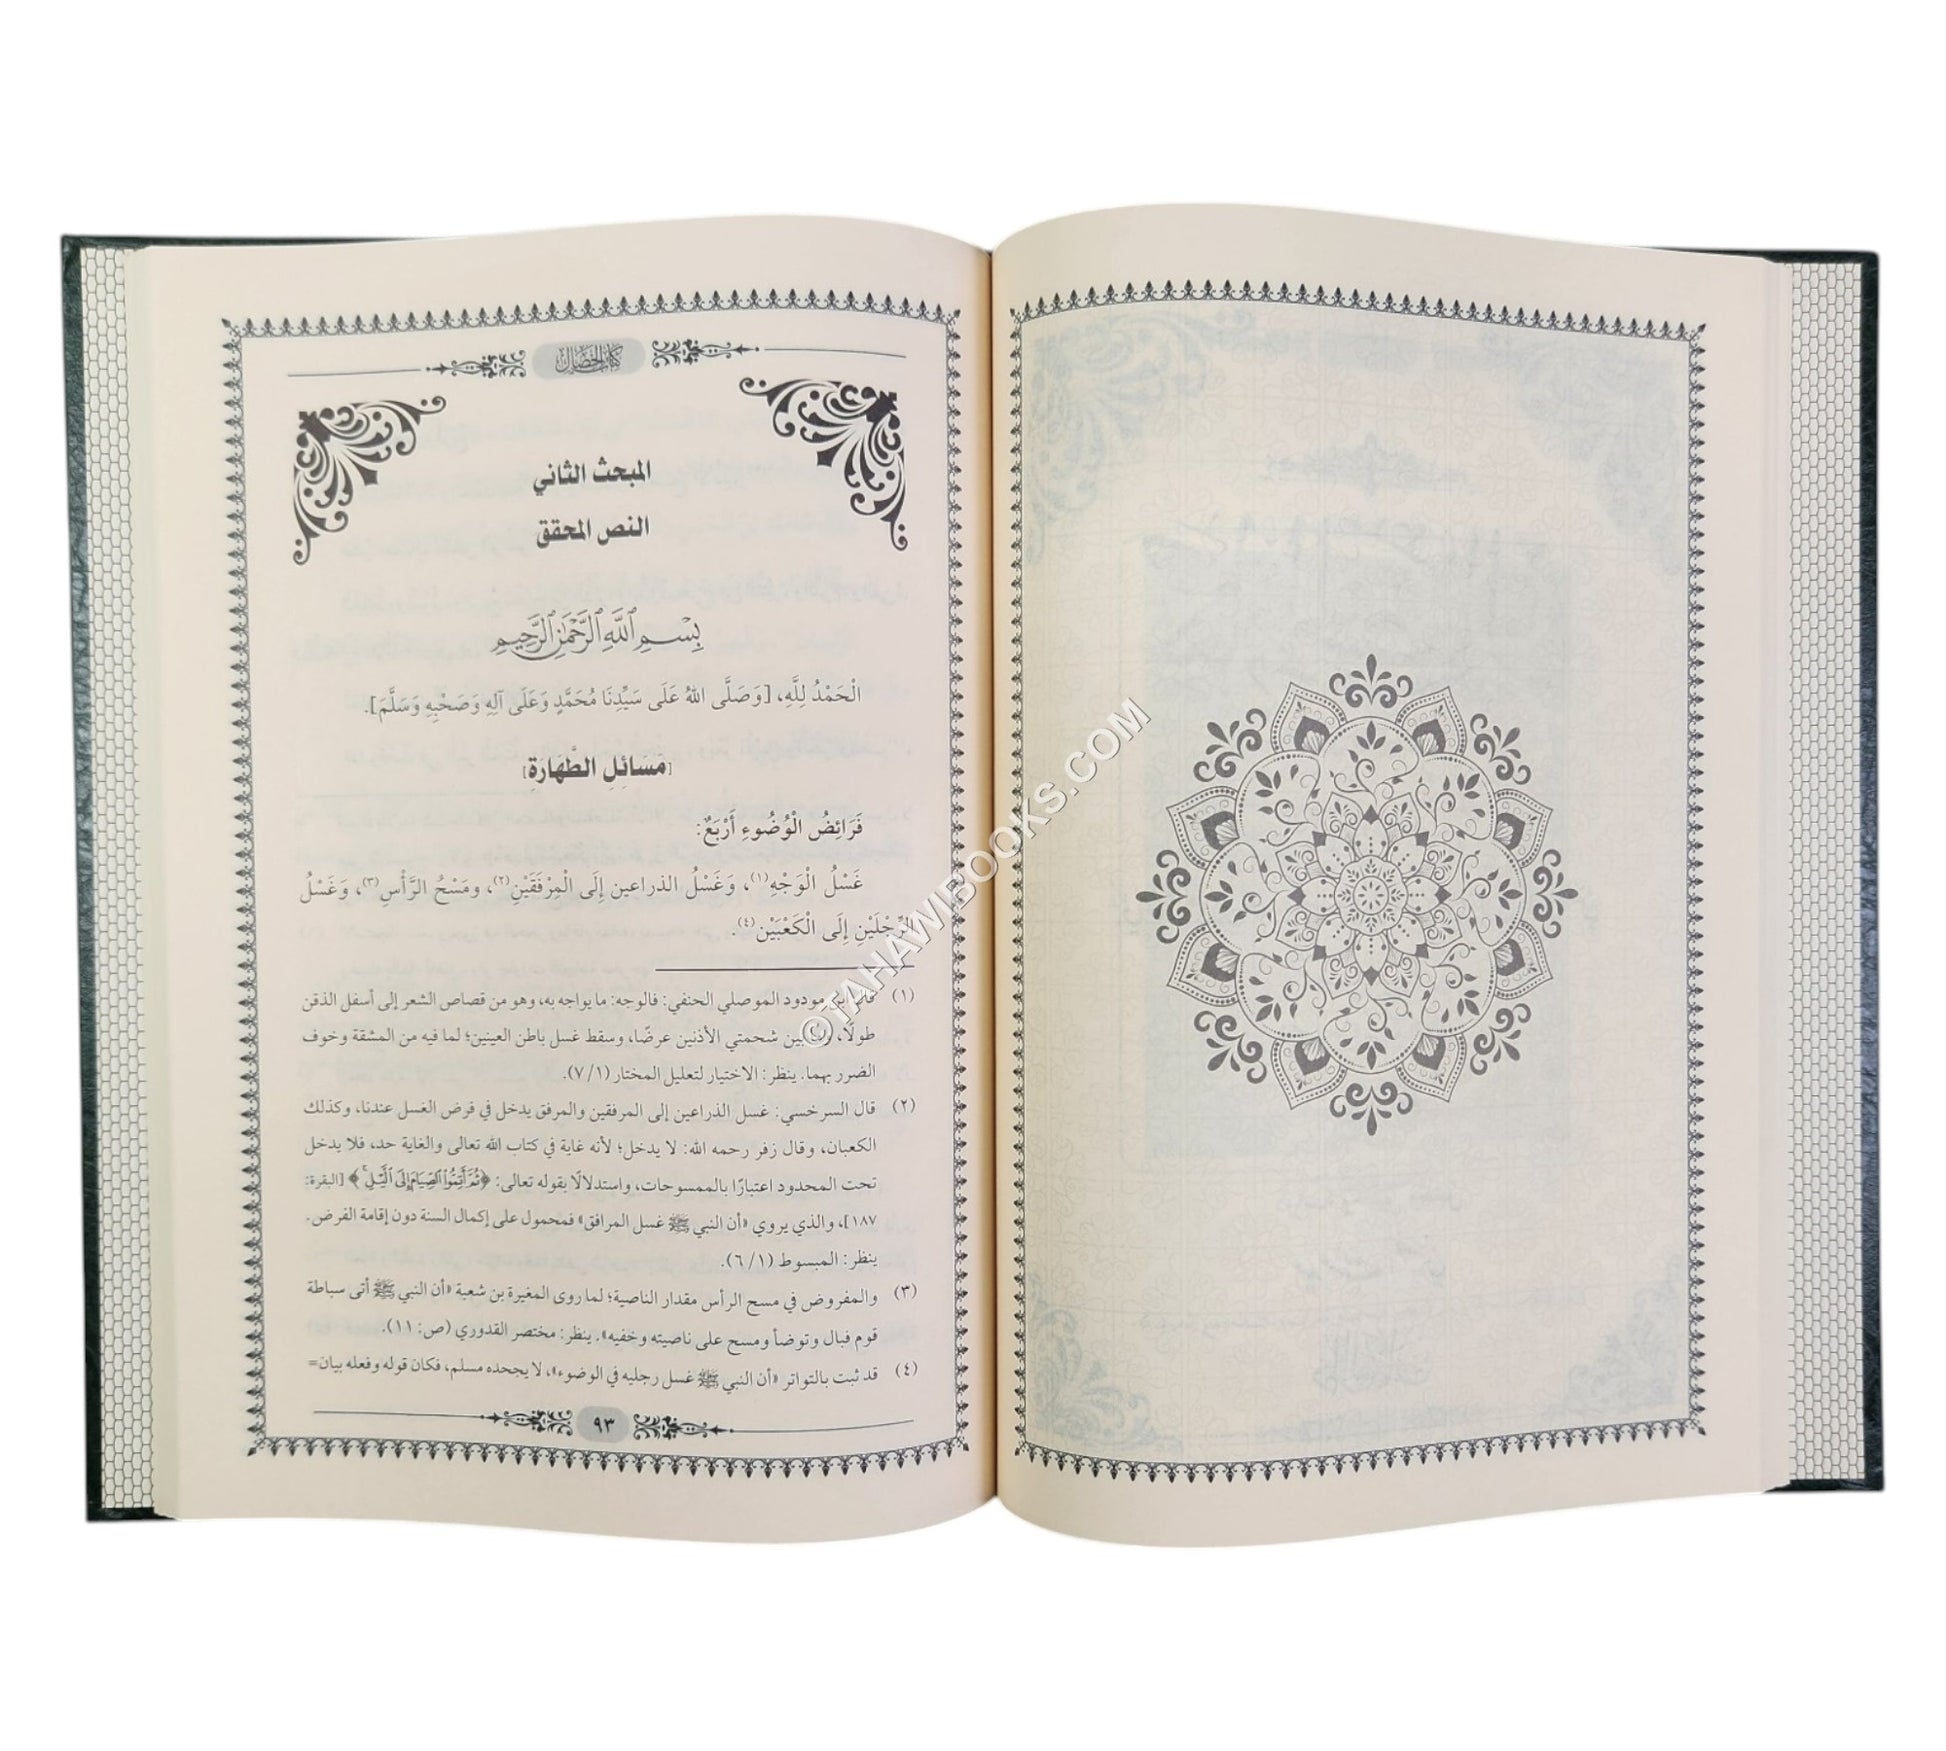 كتاب الخصال
المبحث الثاني
النص المحقق
بِسْمِ ٱللَّهِ ٱلرَّحْمَٰنِ ٱلرَّحِيمِ
الْحَمْدُ لِلَّهِ، [وَصَلَّى اللهُ عَلَى سَيِّدِنَا مُحَمَّدٍ وَعَلَى آلِهِ وَصَحْبِهِ وَسَلَّمَ].
[مَسَائِلِ الطَّهَارَةِ]
فَرَائِضُ الْوُضُوءِ أَرْبَعٌ:
غَسْلُ الْوَجْهِ(١)، وَغَسْلُ الذراعين إِلَى الْمِرْفَقَيْنِ(٢)، ومَسْحُ الرَّأْسِ(٣)، وَغَسْلُ
الرِّجْلَيْنِ إِلَى الْكَعْبَيْنِ(٤).
(١) قال ابن مودود الموصلي الحنفي: فالوجه: ما يواجه به، وهو من قصاص الشعر إلى أسفل الذقن
طولًا، وما بين شحمتي الأذنين عرضًا، وسقط غسل باطن العينين؛ لما فيه من المشقة وخوف
الضرر بهما. ينظر: الاختيار لتعليل المختار (٧/١).
(٢) قال السرخسي: غسل الذراعين إلى المرفقين والمرفق يدخل في فرض الغسل عندنا، وكذلك
الكعبان، وقال زفر رحمه الله: لا يدخل؛ لأنه غاية في كتاب الله تعالى والغاية حد، فلا يدخل
تحت المحدود اعتبارًا بالممسوحات، واستدلالًا بقوله تعالى: ﴿ثُمَّ أَتِمُّوا۟ ٱلصِّيَامَ إِلَى ٱلَّيْلِ ۚ﴾ [البقرة:
١٨٧]، والذي يروي «أن النبي ﷺ غسل المرافق» فمحمول على إكمال السنة دون إقامة الفرض.
ينظر: المبسوط (٦/١).
(٣) والمفروض في مسح الرأس مقدار الناصية؛ لما روى المغيرة بن شعبة «أن النبي ﷺ أتى سباطة
قوم فبال وتوضأ ومسح على ناصيته وخفيه». ينظر: مختصر القدوري (ص: ١١).
(٤) قد ثبت بالتواتر «أن النبي ﷺ غسل رجليه في الوضوء»، لا يجحده مسلم، فكان قوله وفعله بيان=
٩٣
©TAHAWIBOOKS.COM